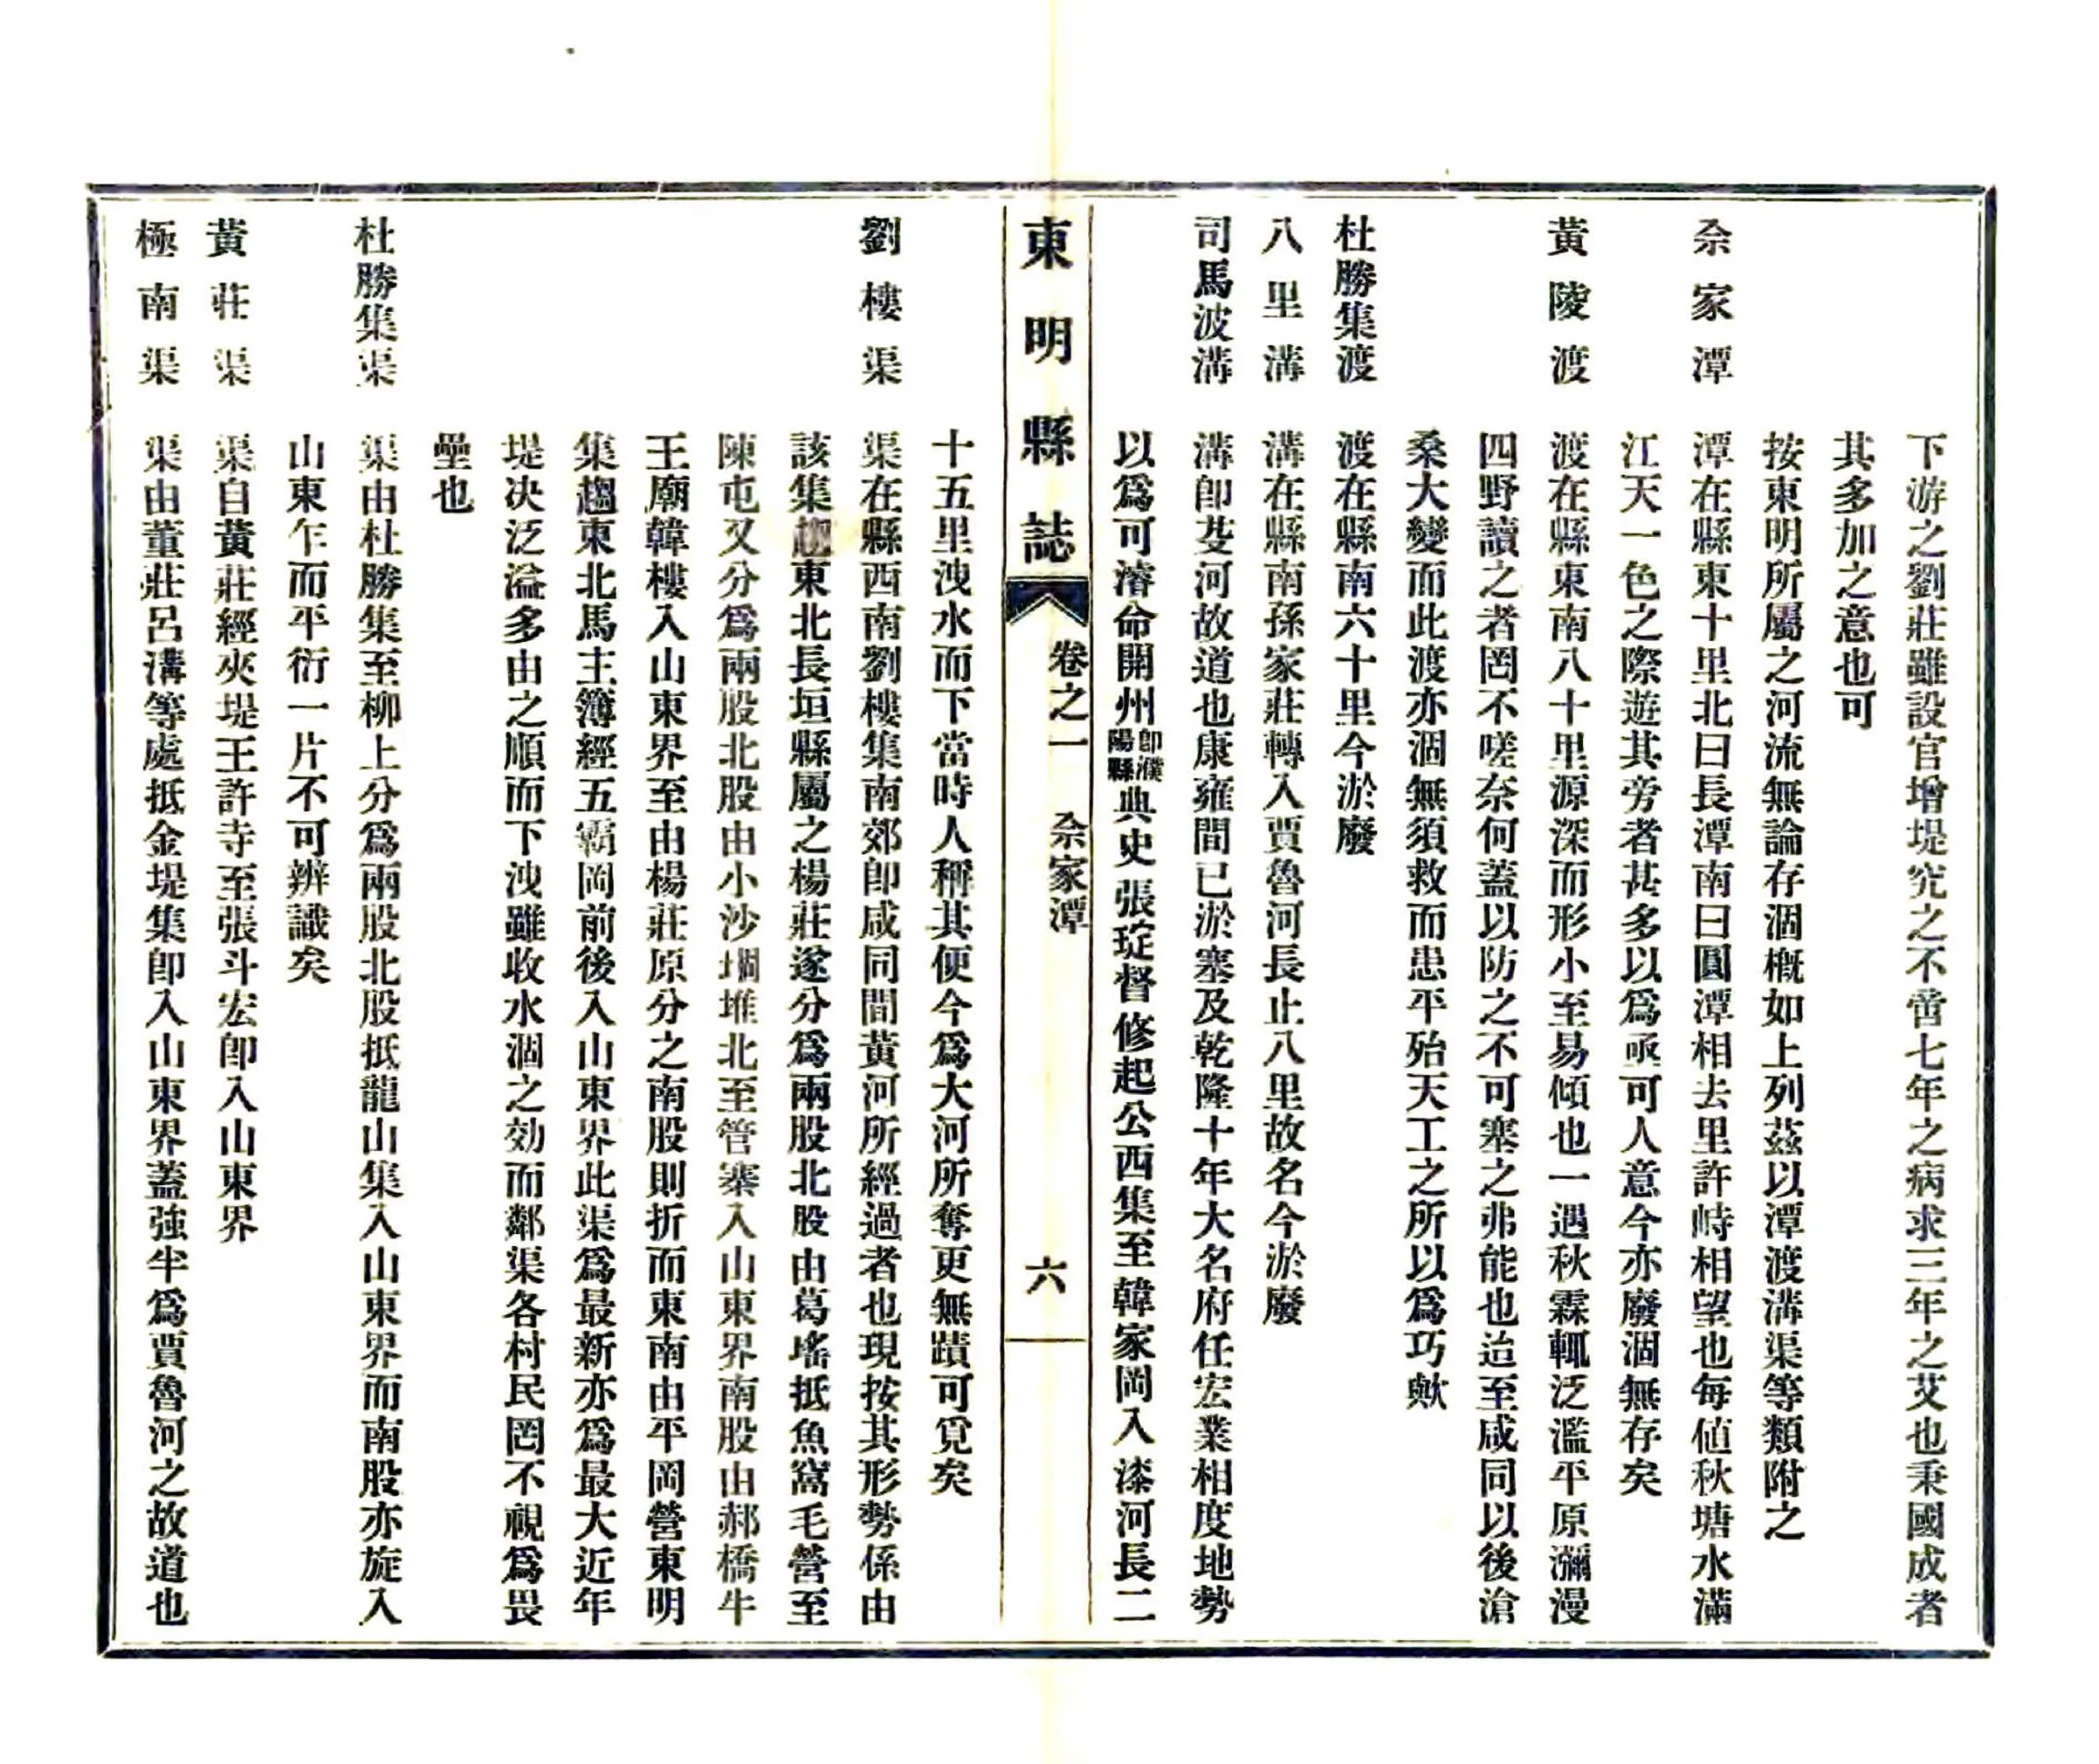 下游之劉莊雖設官增堤究之不啻七年之病求三年之艾也秉國成者
其多加之意也可
按東明所屬之河流無論存涸概如上列茲以潭渡溝渠等類附之
佘家潭 潭在縣東十里北曰長潭南曰圓潭相去里許峙相望也每値秋塘水滿
江天一色之際遊其旁者甚多以爲亟可人意今亦廢涸無存矣
黃陵渡 渡在縣東南八十里源深而形小至易傾也一遇秋霖輒泛濫平原瀰漫
四野讀之者罔不嗟奈何蓋以防之不可塞之弗能也迨至咸同以後滄
桑大變而此渡亦涸無須救而患平殆天工之所以爲巧歟
杜勝集渡 渡在縣南六十里今淤廢
八里溝 溝在縣南孫家莊轉入賈魯河長止八里故名今淤廢
司馬波溝 溝卽芟河故道也康雍間已淤塞及乾隆十年大名府任宏業相度地勢
以爲可濬命開州卽濮陽縣典史張琔督修起公西集至韓家岡入漆河長二
東明縣誌 卷之一 佘家潭 六
十五里洩水而下當時人稱其便今爲大河所奪更無蹟可覓矣
劉樓渠 渠在縣西南劉樓集南郊卽咸同間黃河所經過者也現按其形勢係由
該集趨東北長垣縣屬之楊莊遂分爲兩股北股由葛塔抵魚窩毛營至
陳屯又分爲兩股北股由小沙堌堆北至管寨入山東界南股由郝橋牛
王廟韓樓入山東界至由楊莊原分之南股則折而東南由平岡營東明
集趨東北馬主簿經五霸岡前後入山東界此渠爲最新亦爲最大近年
堤决泛溢多由之順而下洩雖收水涸之効而鄰渠各村民罔不視爲畏
壘也
杜勝集渠 渠由杜勝集至柳上分爲兩股北股抵龍山集入山東界而南股亦旋入
山東乍而平衍一片不可辨識矣
黃莊渠 渠自黃莊經夾堤王許寺至張斗宏卽入山東界
極南渠 渠由董莊呂溝等處抵金堤集卽入山東界蓋強半爲賈魯河之故道也